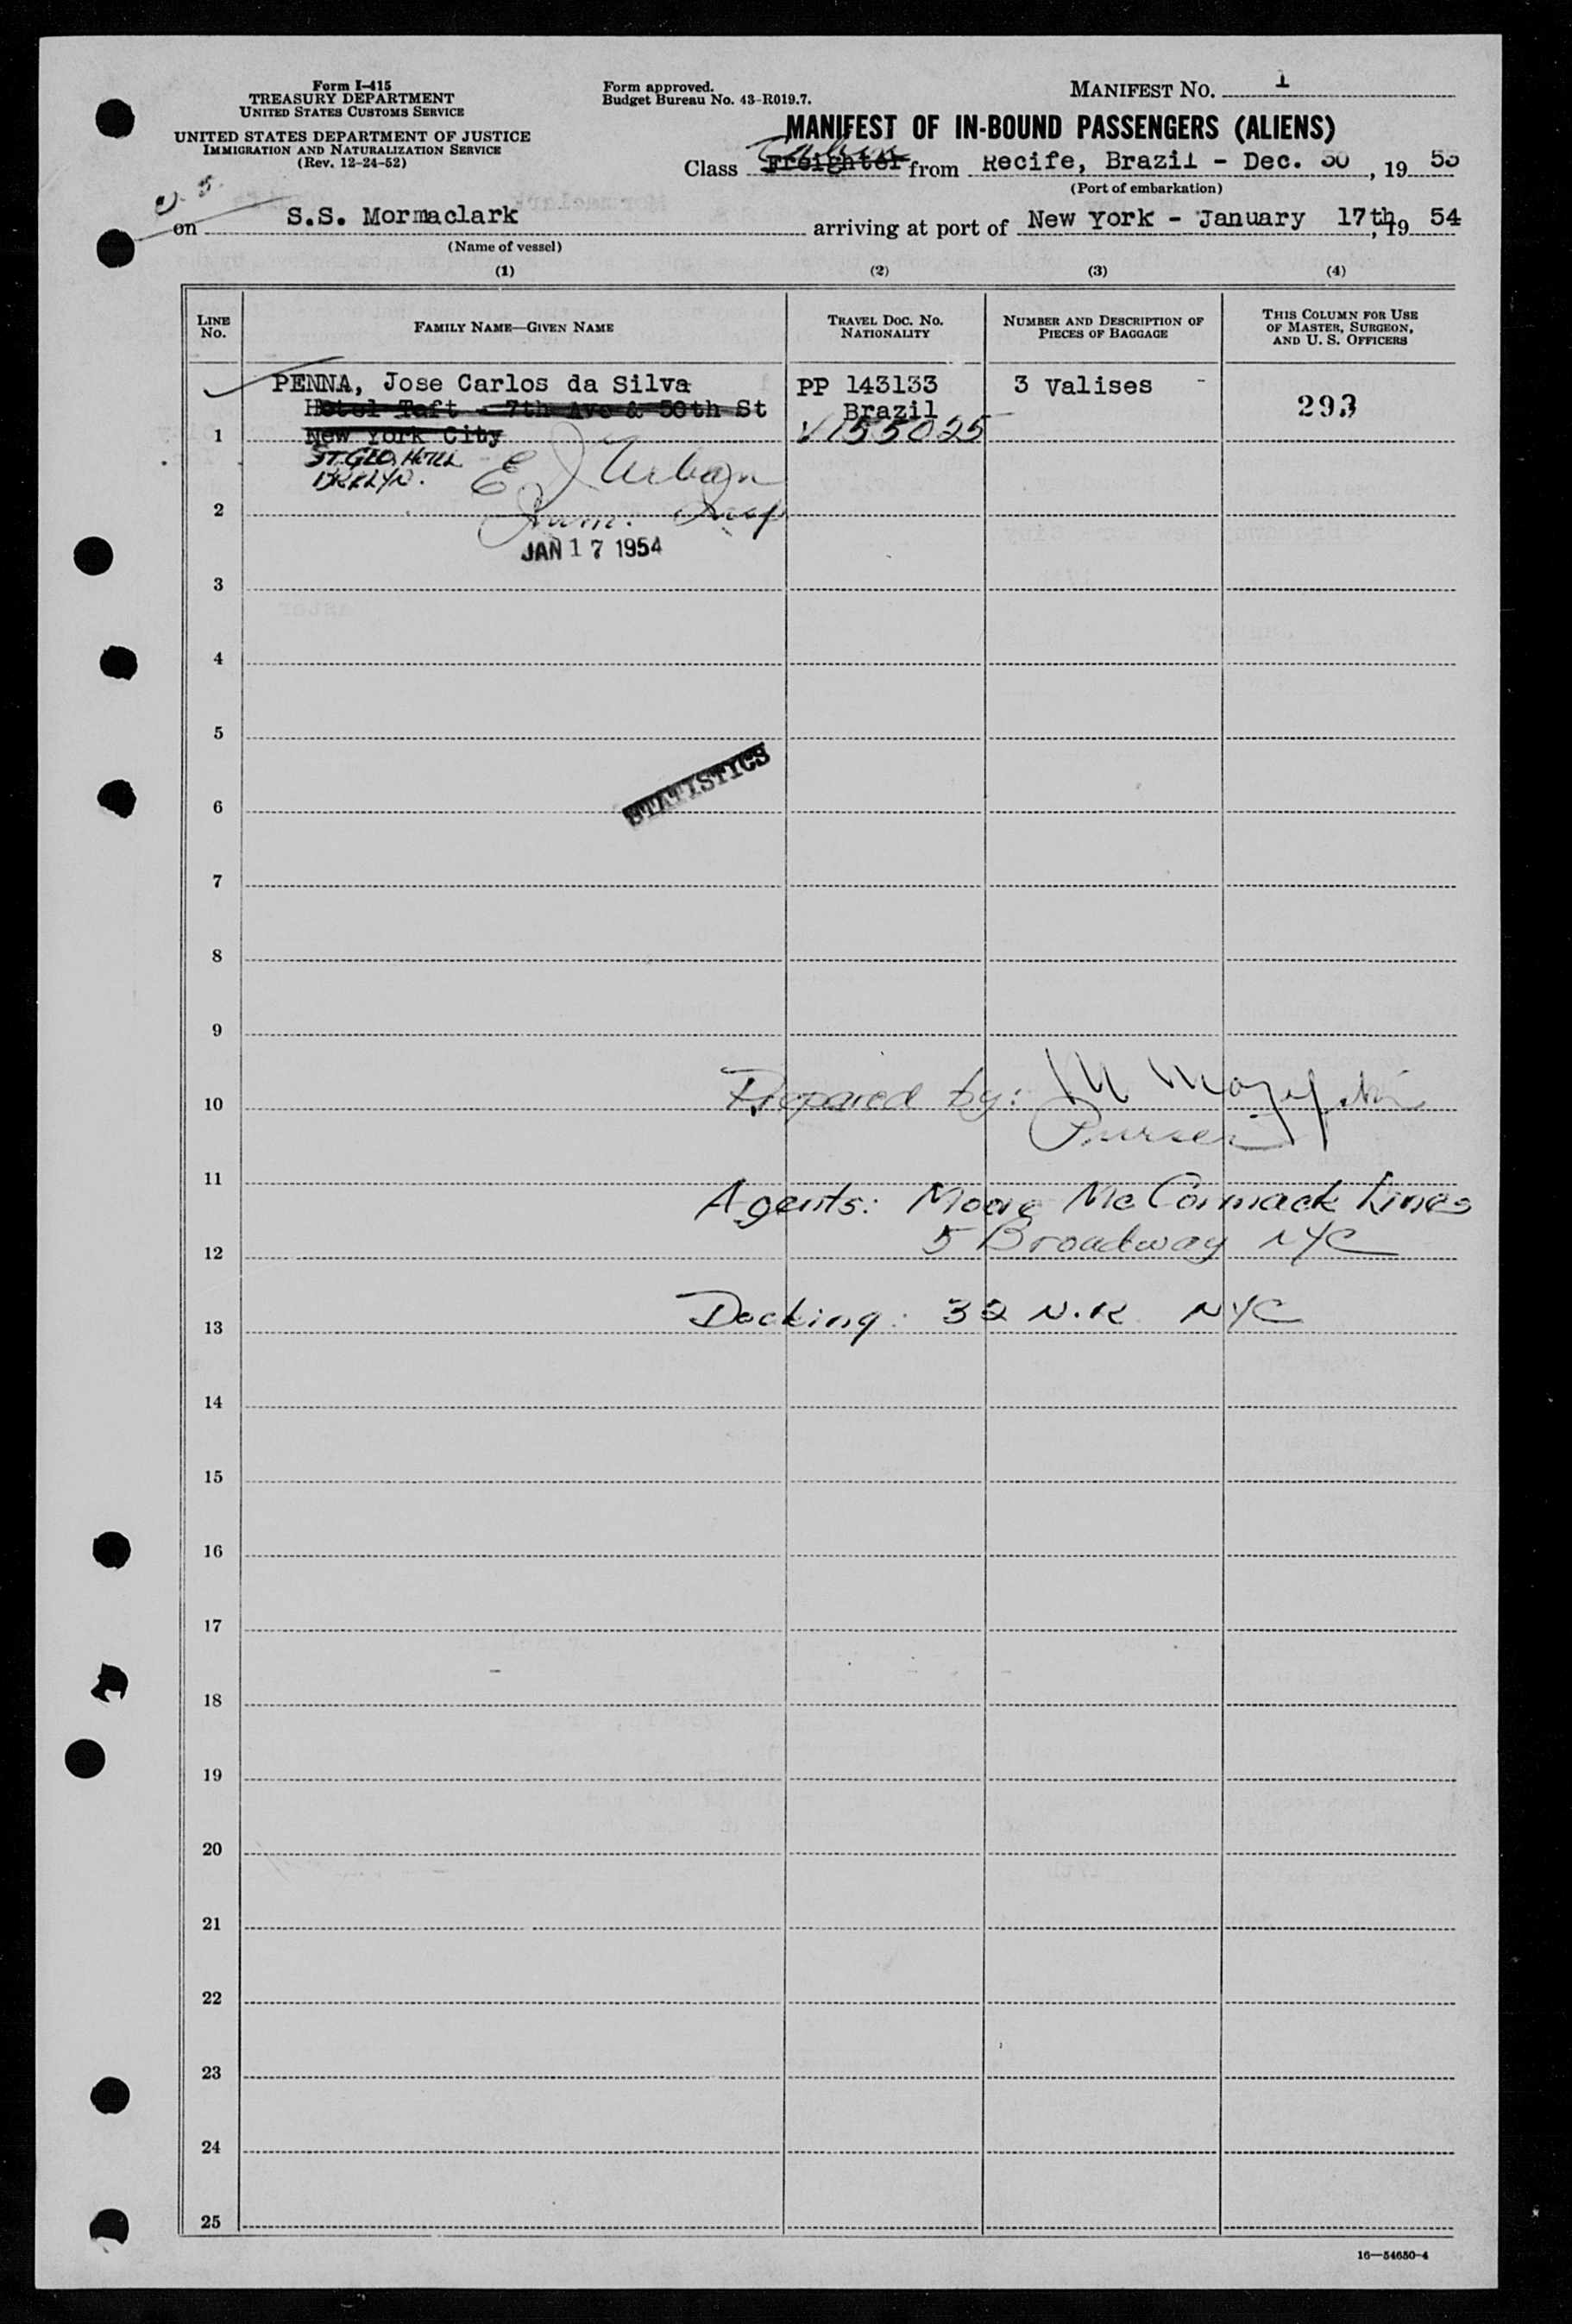 Form I-415
TREASURY DEPARTMENT
UNITED STATES CUSTOMS SERVICE
UNITED STATES DEPARTMENT OF JUSTICE
IMMIGRATION AND NATURALIZATION SERVICE
(Rev. 12-24-52)
Form approved.
Budget Bureau No. 43-R019.7.
MANIFEST NO. 1
MANIFEST OF IN-BOUND PASSENGERS (ALIENS)
Cabin
Class Freighter from Recife, Brazil - Dec. 30, 19 53
(Port of embarkation)
on S.S. Mormaclark arriving at port of New York - January 17th, 19 54
(Name of vessel)
(1) (2) (3) (4)
LINE No. FAMILY NAME—GIVEN NAME TRAVEL DOC. NO. NATIONALITY NUMBER AND DESCRIPTION OF PIECES OF BAGGAGE THIS COLUMN FOR USE OF MASTER, SURGEON, AND U. S. OFFICERS
PENNA, Jose Carlos da Silva PP 143133 3 Valises
Hotel Taft - 7th Ave & 50th St Brazil 293
1 New York City V155025
ST. GEO. HOTEL
BKKLYN.
E J Urban
2 Imm. Insp
JAN 17 1954
3
4
5
STATISTICS
6
7
8
9
10 Prepared by: M
Purser
11
Agents: Moore McCormack Lines
12 5 Broadway NYC
13 Docking: 32 N.R. NYC
14
15
16
17
18
19
20
21
22
23
24
25
16—54650-4